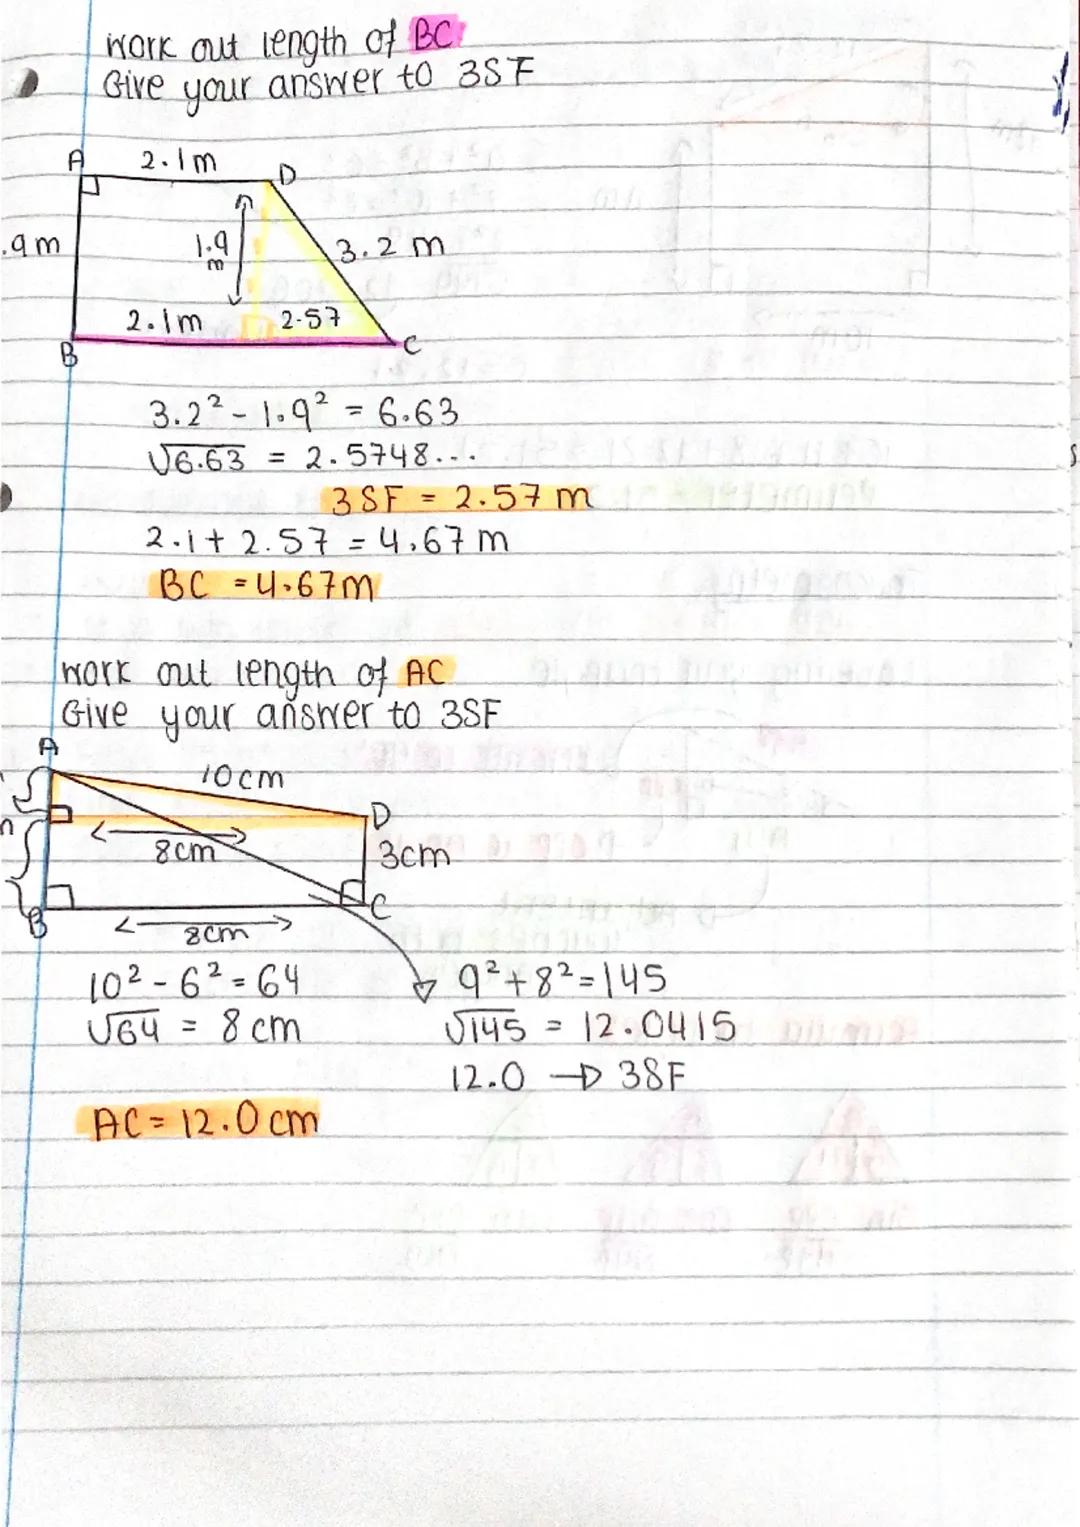 Work out length of BC
Give your answer to 3SF
A 2.1m D
.9m 1.9 m 3.2 m
2.1m 2.57
B C
3.2² - 1.9² = 6.63
√6.63 = 2.5748...
3SF = 2.57 m
2.1 + 2.57 = 4.67m
BC = 4.67m
work out length of AC
Give your answer to 3SF
A
10cm
D
8cm 3cm
B C
8cm
10² - 6² = 64 9² + 8² = 145
√64 = 8cm √145 = 12.0415
12.0 → 3SF
AC = 12.0 cm